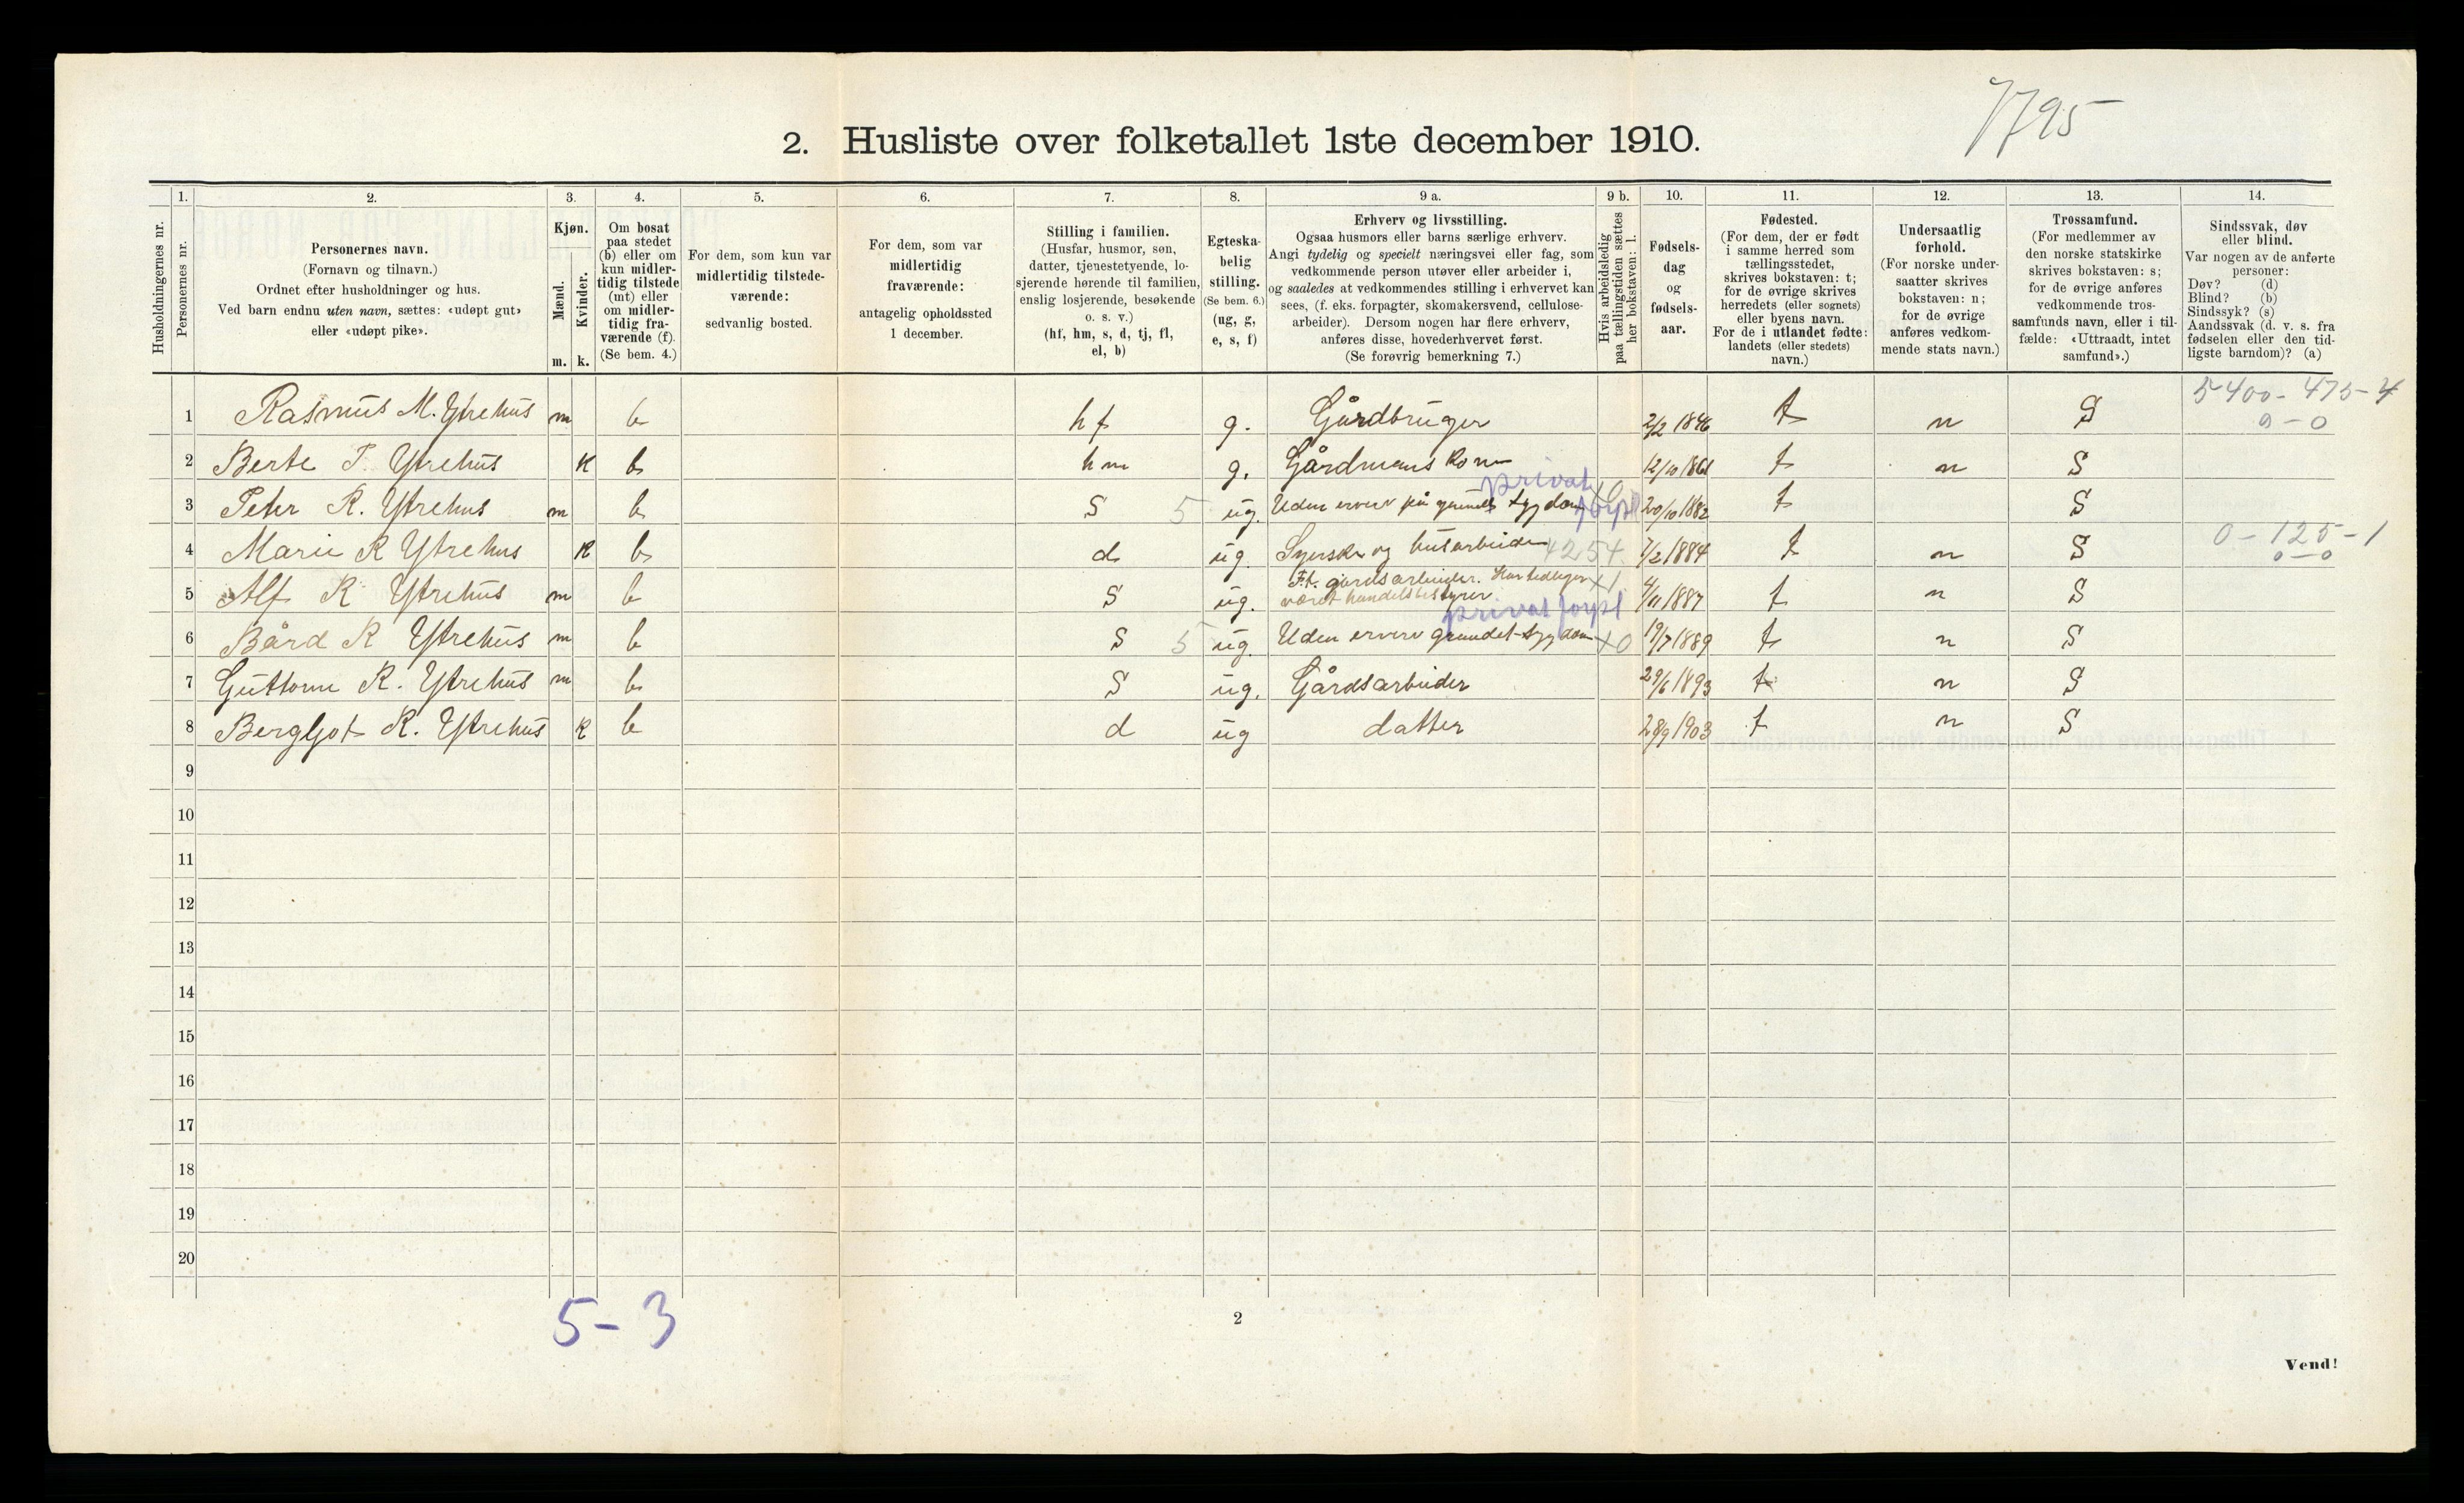 7795
2. Husliste over folketallet 1ste december 1910.
Husholdningernes nr.
1.
Personernes nr.
2.
Personernes navn.
(Fornavn og tilnavn.)
Ordnet efter husholdninger og hus.
Ved barn endnu uten navn, sættes: «udøpt gut»
eller «udøpt pike».
3.
Kjøn.
Mænd.
Kvinder.
m. k.
4.
Om bosat
paa stedet
(b) eller om
kun midler-
tidig tilstede
(mt) eller
om midler-
tidig fra-
værende (f).
(Se bem. 4.)
5.
For dem, som kun var
midlertidig tilstede-
værende:
sedvanlig bosted.
6.
For dem, som var
midlertidig
fraværende:
antagelig opholdssted
1 december.
7.
Stilling i familien.
(Husfar, husmor, søn,
datter, tjenestetyende, lo-
sjerende hørende til familien,
enslig losjerende, besøkende
o. s. v.)
(hf, hm, s, d, tj, fl,
el, b)
8.
Egteska-
belig
stilling.
(Se bem. 6.)
(ug, g,
e, s, f)
9 a.
Erhverv og livsstilling.
Ogsaa husmors eller barns særlige erhverv.
Angi tydelig og specielt næringsvei eller fag, som
vedkommende person utøver eller arbeider i,
og saaledes at vedkommendes stilling i erhvervet kan
sees, (f. eks. forpagter, skomakersvend, cellulose-
arbeider). Dersom nogen har flere erhverv,
anføres disse, hovederhvervet først.
(Se forøvrig bemerkning 7.)
9 b.
Hvis arbeidsledig
paa tællingstiden sættes
her bokstaven: l.
10.
Fødsels-
dag
og
fødsels-
aar.
11.
Fødested.
(For dem, der er født
i samme herred som
tællingsstedet,
skrives bokstaven: t;
for de øvrige skrives
herredets (eller sognets)
eller byens navn.
For de i utlandet fødte:
landets (eller stedets)
navn.)
12.
Undersaatlig
forhold.
(For norske under-
saatter skrives
bokstaven: n;
for de øvrige
anføres vedkom-
mende stats navn.)
13.
Trossamfund.
(For medlemmer av
den norske statskirke
skrives bokstaven: s;
for de øvrige anføres
vedkommende tros-
samfunds navn, eller i til-
fælde: «Uttraadt, intet
samfund».)
14.
Sindssvak, døv
eller blind.
Var nogen av de anførte
personer:
Døv? (d)
Blind? (b)
Sindssyk? (s)
Aandssvak (d. v. s. fra
fødselen eller den tid-
ligste barndom)? (a)
5-400-475-4
1 Rasmus M. Ytrehus m b hf g. Gårdbruger 2/2 1846 t n S 9-0
2 Berte P. Ytrehus K b hm g. Gårdmans kone 12/10 1861 t n S
privat
3 Peter R. Ytrehus m b S 5 ug. Uden erverv på grund sygdom forpl. x0 20/10 1882 t S
0-125-1
4 Marie R Ytrehus K b d ug. Syerske og husarbeide 4254 7/2 1884 t n S 0-0
Ft. gårdsarbeider. Har tidligere x1
5 Alf R Ytrehus m b S ug. været handelsbestyrer 4/11 1887 t n S
privat forpl
6 Bård R Ytrehus m b S 5 ug. Uden erverv grundet sygdom x0 19/7 1889 t n S
7 Guttorm R. Ytrehus m b S ug. Gårdsarbeider 29/6 1893 t n S
8 Bergljot R. Ytrehus K b d ug datter 28/9 1903 t n S
9
10
11
12
13
14
15
16
17
18
19
20
5-3
2
Vend!